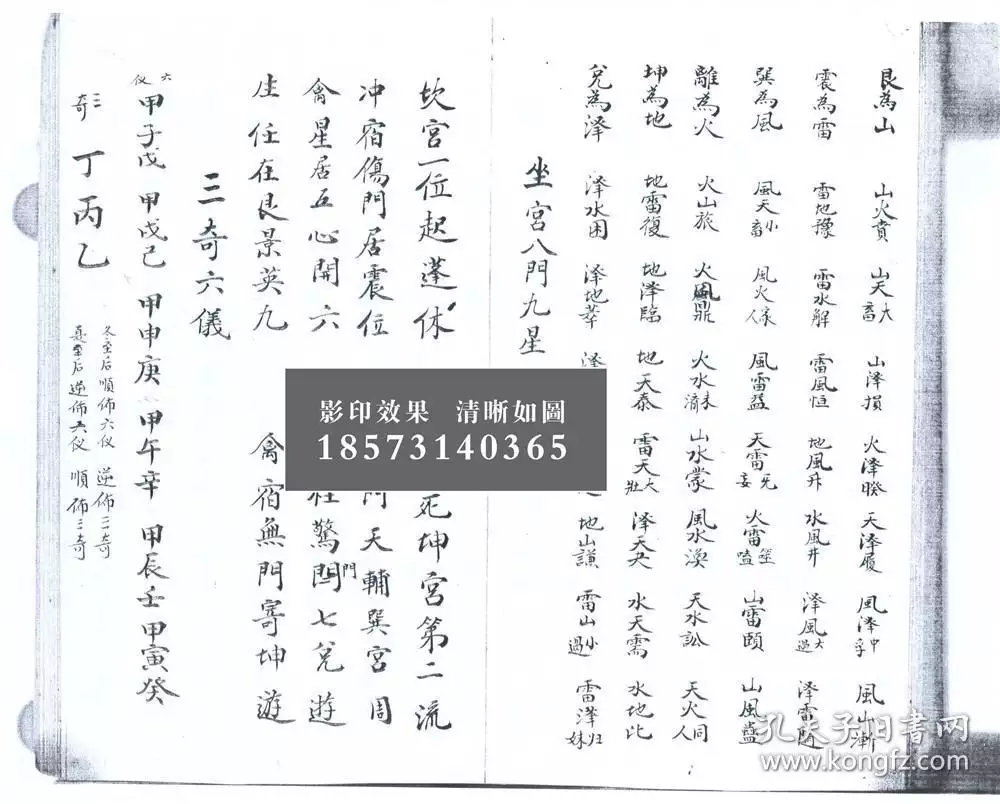 艮為山 山火賁 山天大畜 山泽損 火泽睽 天泽履 風泽中孚 風山漸
震為雷 雷地豫 雷水解 雷風恒 地風升 水風井 泽風大过 泽雷随
巽為風 風天小畜 風火家人 風雷益 天雷无妄 火雷噬嗑 山雷頤 山風蠱
離為火 火山旅 火風鼎 火水未濟 山水蒙 風水渙 天水訟 天火同人
坤為地 地雷復 地泽臨 地天泰 雷天大壯 泽天夬 水天需 水地比
兌為泽 泽水困 泽地萃 泽 地山謙 雷山小過 雷泽归妹
坐宮八門九星
坎宮一位起蓬休 死坤宮第二流
冲宿傷門居震位 門天輔巽宮周
禽星居五心開六 柱驚門七兌遊
生任在艮景英九 禽宿無門寄坤遊
三奇六儀
六仪 甲子戊 甲戌己 甲申庚 甲午辛 甲辰壬 甲寅癸
三奇 丁丙乙
冬至后順佈六仪 逆佈三奇
夏至后逆佈六仪 順佈三奇
影印效果 清晰如圖
18573140365
孔夫子旧书网
www.kongfz.com